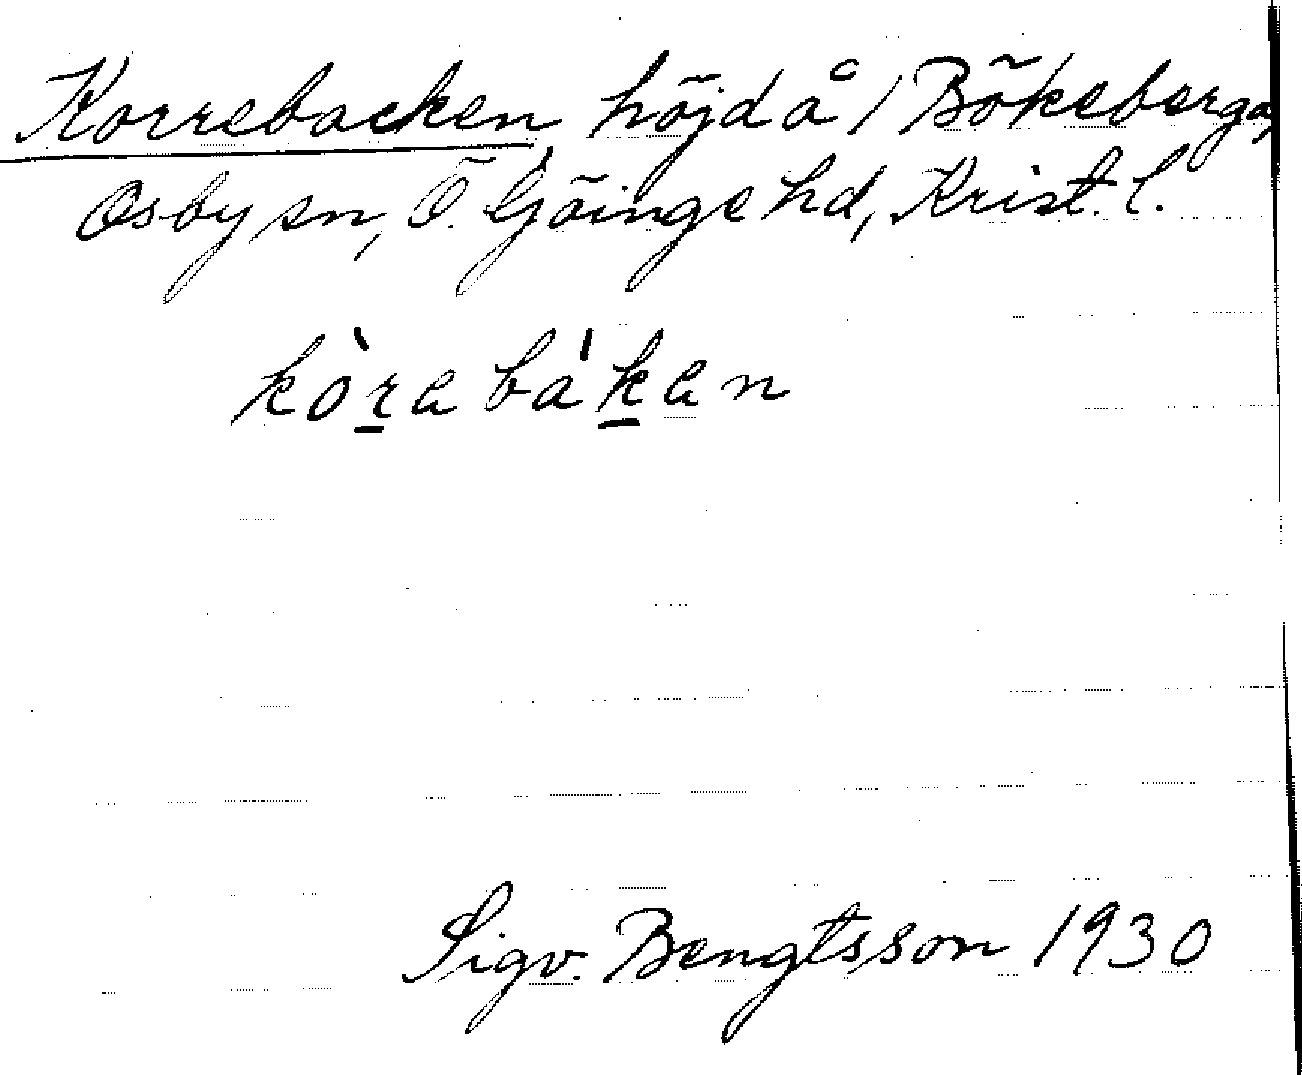 Korrebacken, höjd å 1 Bökeberga,
Osby sn, Ö. Göinge hd, Krist. l.
kòrabákan
Sigv. Bengtsson 1930